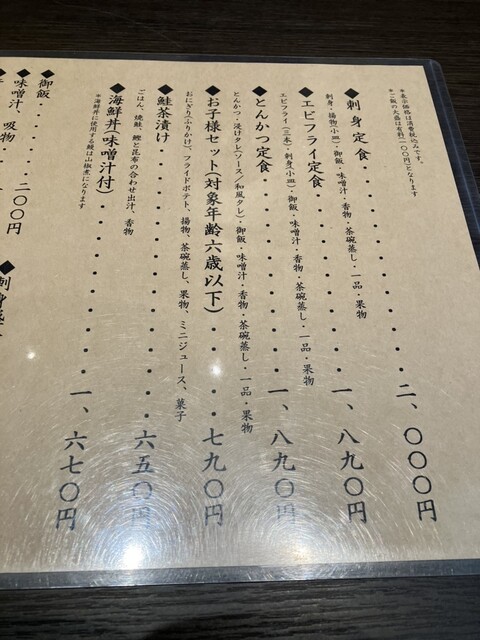 ＊表示価格は消費税込みです。
＊ご飯の大盛は有料(一〇〇円)となります
◆刺身定食・・・・・・・・・・二、〇〇〇円
刺身・揚物(小皿)・御飯・味噌汁・香物・茶碗蒸し・一品・果物
◆エビフライ定食・・・・・・・・一、八九〇円
エビフライ(三本)・刺身(小皿)・御飯・味噌汁・香物・茶碗蒸し・一品・果物
◆とんかつ定食・・・・・・・・一、八九〇円
とんかつ・漬けタレ(ソース／和風タレ)・御飯・味噌汁・香物・茶碗蒸し・一品・果物
◆お子様セット(対象年齢六歳以下)・・・・七九〇円
おにぎり(ふりかけ)、フライドポテト、揚物、茶碗蒸し、果物、ミニジュース、菓子
◆鮭茶漬け・・・・・・・・・・六五〇円
ごはん、焼鮭、鰹と昆布の合わせ出汁、香物
◆海鮮丼(味噌汁付)・・・・・・・一、六七〇円
＊海鮮丼に使用する鰻は山椒煮になります
◆御飯・・・・・・
◆味噌汁、吸物・・・二〇〇円
◆刺身